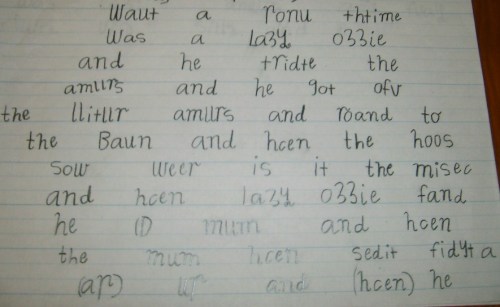 Waut a ronu thtime
Was a lazy ozzie
and he tridte the
amurs and he got ofv
the llitur amurs and roand to
the Baun and hcen the hoos
sow weer is it the misec
and hcen lazy ozzie fand
he mum and hcen
the mum hcen sedit fidyt a
and (hcen) he